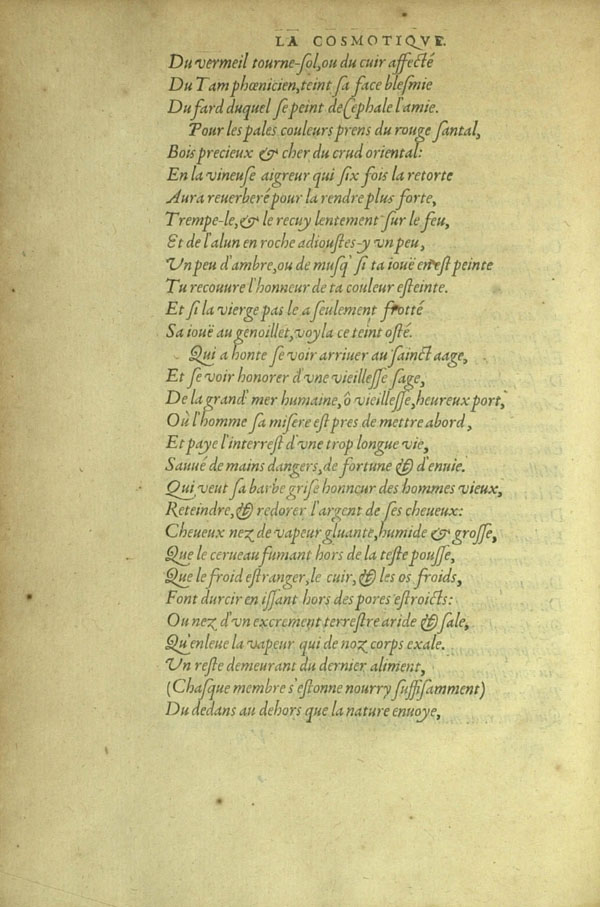 LA COSMOTIQVE.
Du vermeil tourne-sol, ou du cuir affecté
Du Tam phœnicien, teint sa face blesmie
Du fard duquel se peint de Cephale l'amie.
Pour les pales couleurs prens du rouge santal,
Bois precieux & cher du crud oriental:
En la vineuse aigreur qui six fois la retorte
Aura reuerberé pour la rendre plus forte,
Trempe-le, & le recuy lentement sur le feu,
Et de l'alun en roche adioustes-y vn peu,
Vn peu d'ambre, ou de musq' si ta iouë en est peinte
Tu recouure l'honneur de ta couleur esteinte.
Et si la vierge pas le a seulement frotté
Sa iouë au genoillet, voyla ce teint osté.
Qui a honte se voir arriuer au sainct aage,
Et se voir honorer d'vne vieillesse sage,
De la grand' mer humaine, ô vieillesse, heureux port,
Où l'homme sa misere est pres de mettre abord,
Et paye l'interrest d'vne trop longue vie,
Sauué de mains dangers, de fortune & d'enuie.
Qui veut sa barbe grise honneur des hommes vieux,
Reteindre, & redorer l'argent de ses cheueux:
Cheueux nez de vapeur gluante, humide & grosse,
Que le cerueau fumant hors de la teste pousse,
Que le froid estranger, le cuir, & les os froids,
Font durcir en issant hors des pores estroicts:
Ou nez d'vn excrement terrestre aride & sale,
Qu'enleue la vapeur qui de noz corps exale.
Vn reste demeurant du dernier aliment,
(Chasque membre s'estonne nourry suffisamment)
Du dedans au dehors que la nature enuoye,